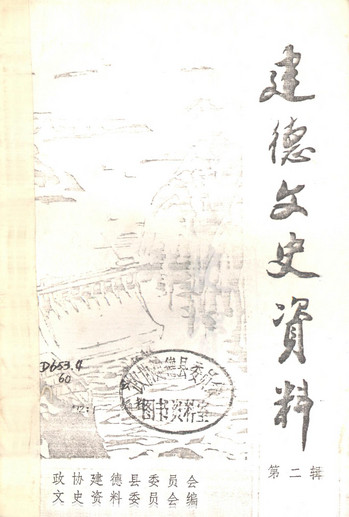 建德文史資料
第二辑
D653.4
60
政协建德县委员会
图书资料室
政协建德县委员会
文史资料委员会编